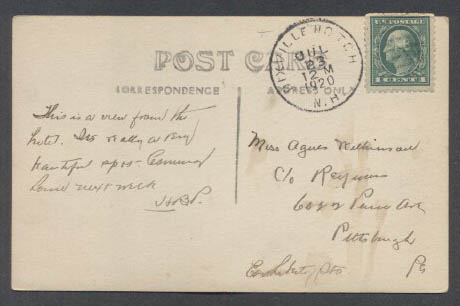 POST CARD
CORRESPONDENCE
ADDRESS ONLY
DIXVILLE NOTCH
JUL
23
12 M
1920
N.H.
U.S. POSTAGE
1 CENT 1
This is a view from the
hotel. Its really a very
beautiful spot - Coming
home next week
Miss Agnes Wilkinson
C/o Reymer
6022 Penn Ave
Pittsburgh
Pa
East Liberty Sta